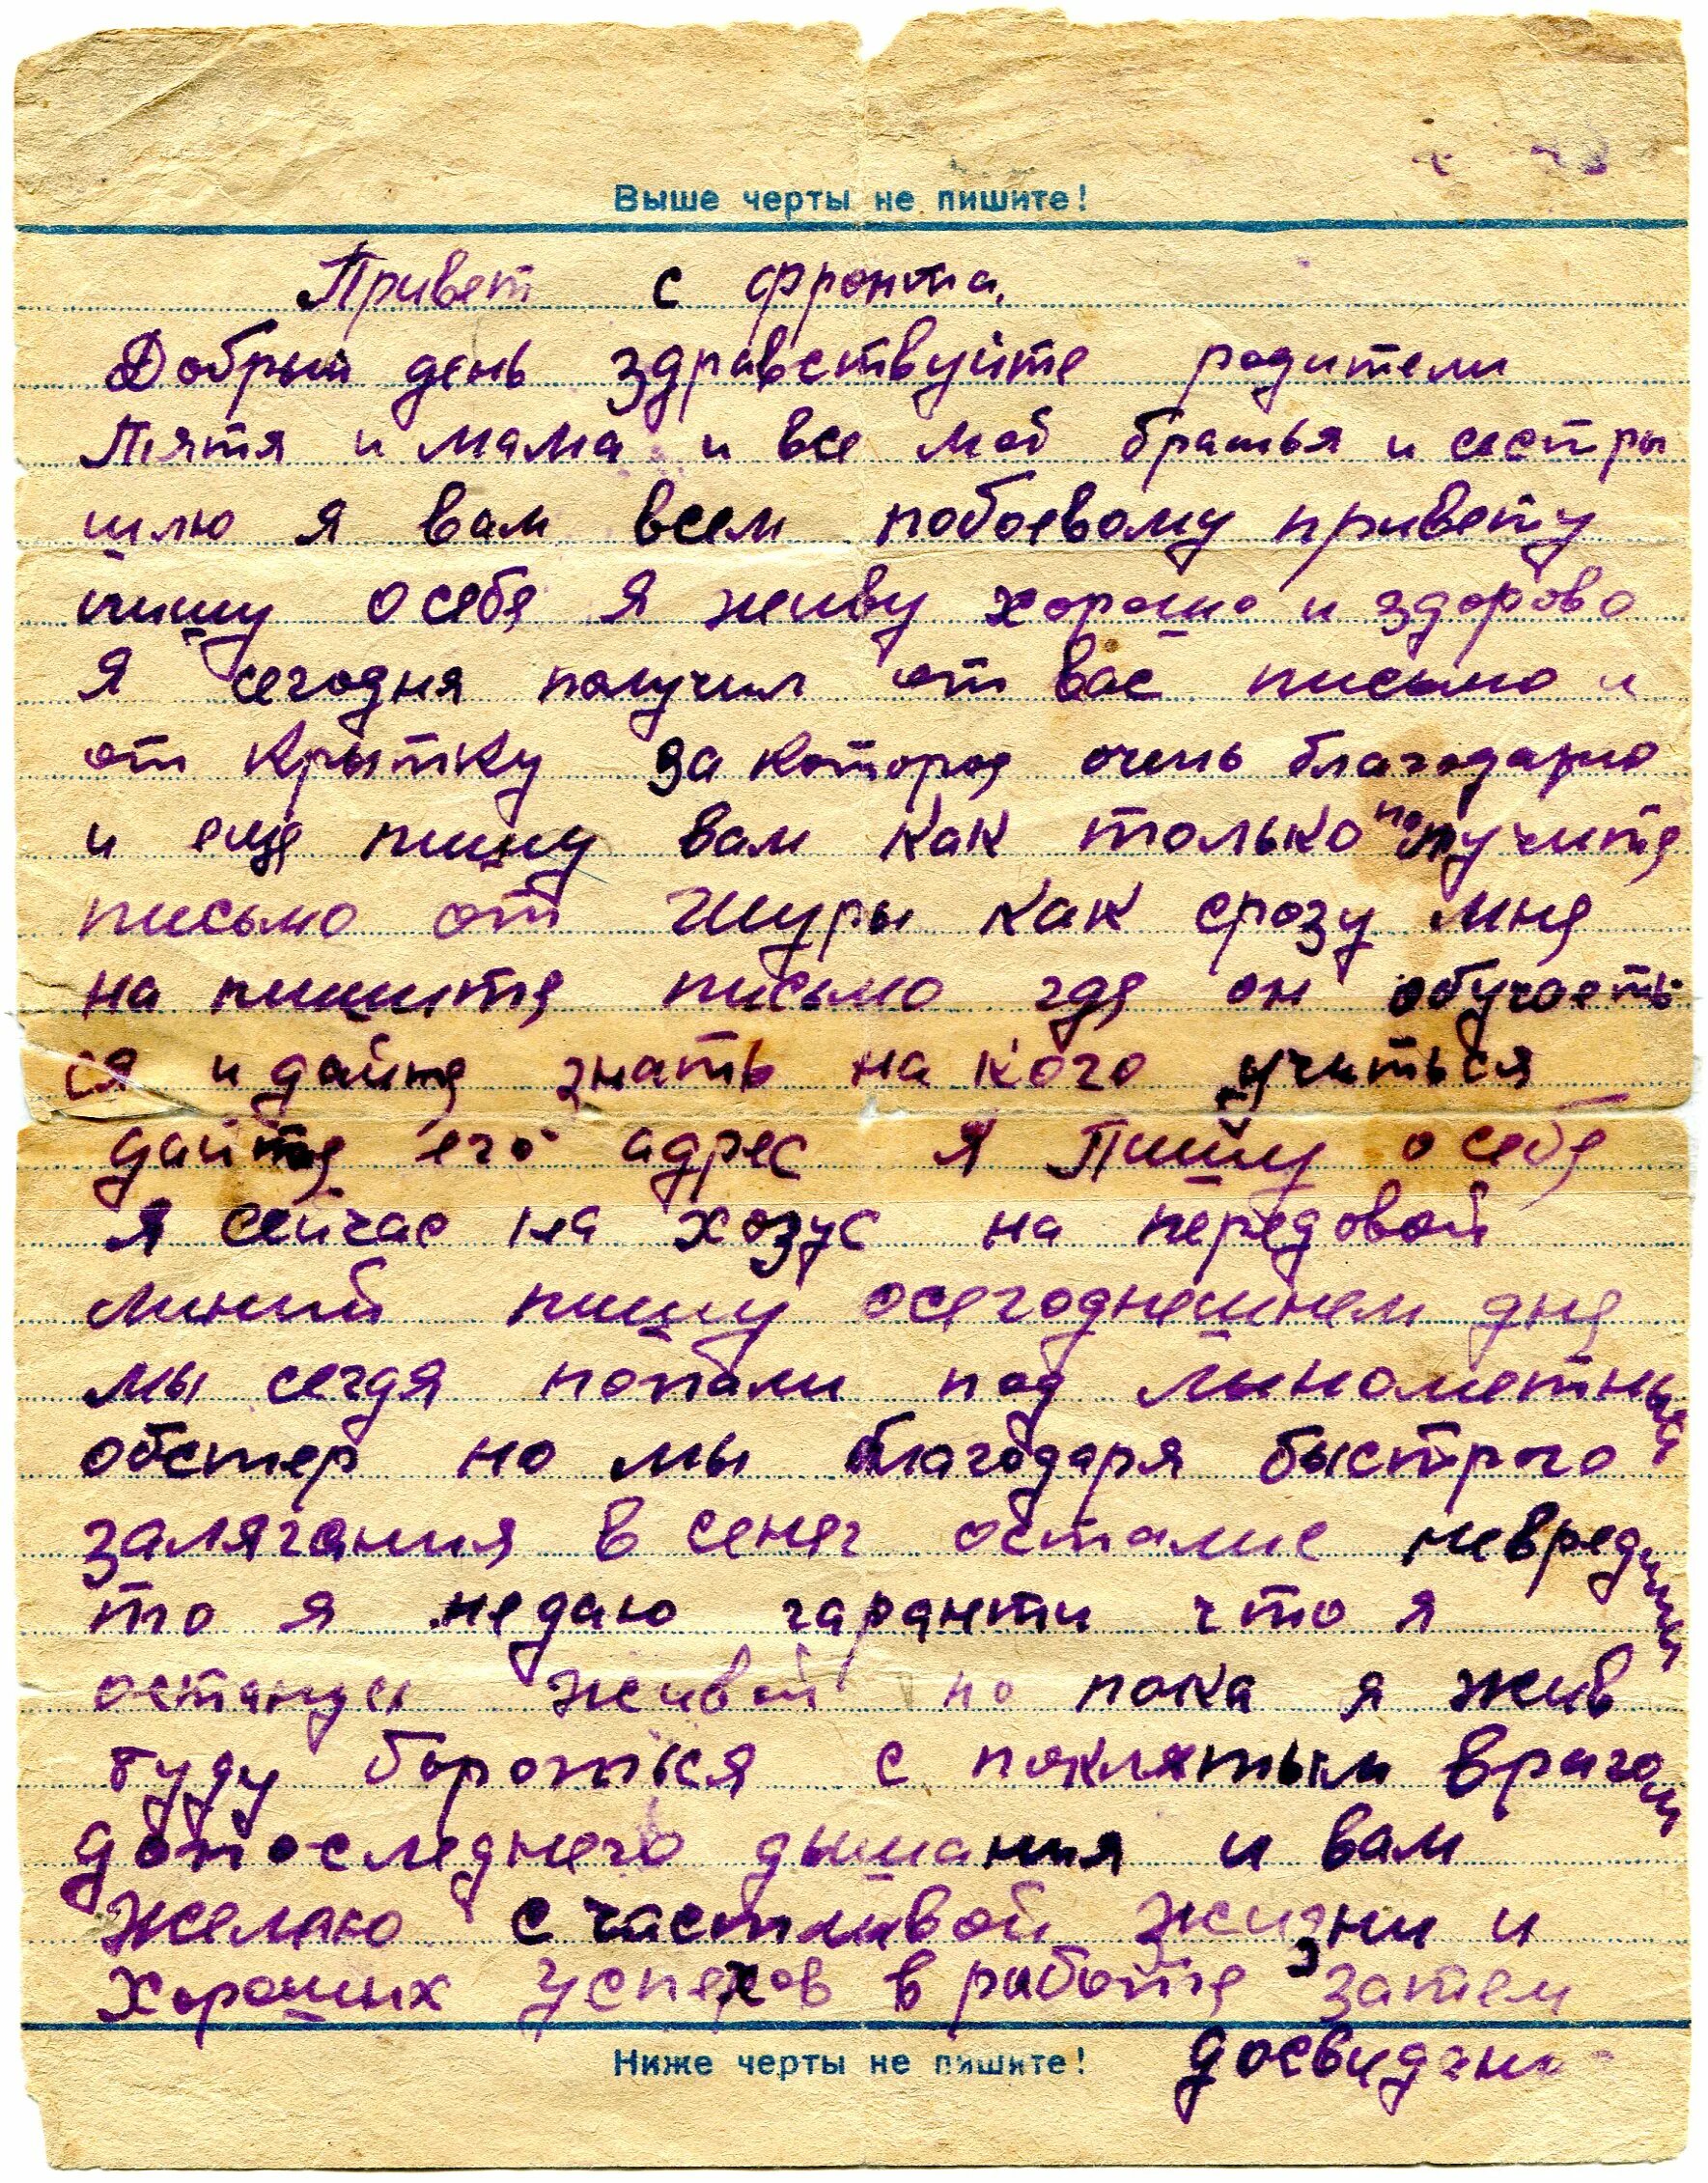 Выше черты не пишите!
Привет с фронта.
Добрый день здравствуйте родители
Тятя и мама и все мой братья и сестры
шлю я вам всем побоевому привету
пишу осебе я живу хорошо и здорово
Я сегодня получил от вас письмо и
от крытку за которое очень благодарю
и еще пишу вам как только получите
письмо от Шуры как сразу мне
на пишите письмо где он обучаеть
ся и дайте знать на кого учиться
дайте его адрес я Пишу о себе
я сейчас на на передовой
линий пишу осегоднешнем дне
мы сегдя попали под минометный
обстер но мы благодаря быстрого
залягания в снег остались невредимы
то я недаю гаранти что я
останусь живой но пока я жив
буду бороться с проклятым врагом
допоследнего дыхания и вам
желаю счастливой жизни и
хороших успехов в работе, затем
Ниже черты не пишите! досвидани